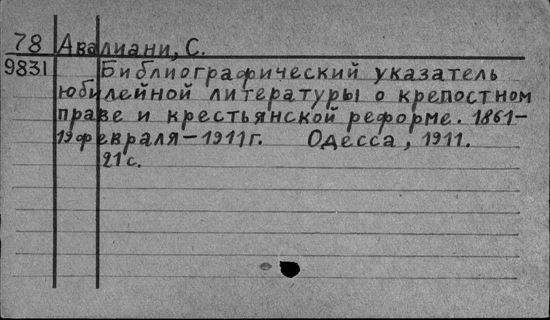 78 Авалиани, С.
9831 Библиографический указатель
юбилейной литературы о крепостном
праве и крестьянской реформе. 1861-
19 февраля-1911 г. Одесса, 1911.
21 с.